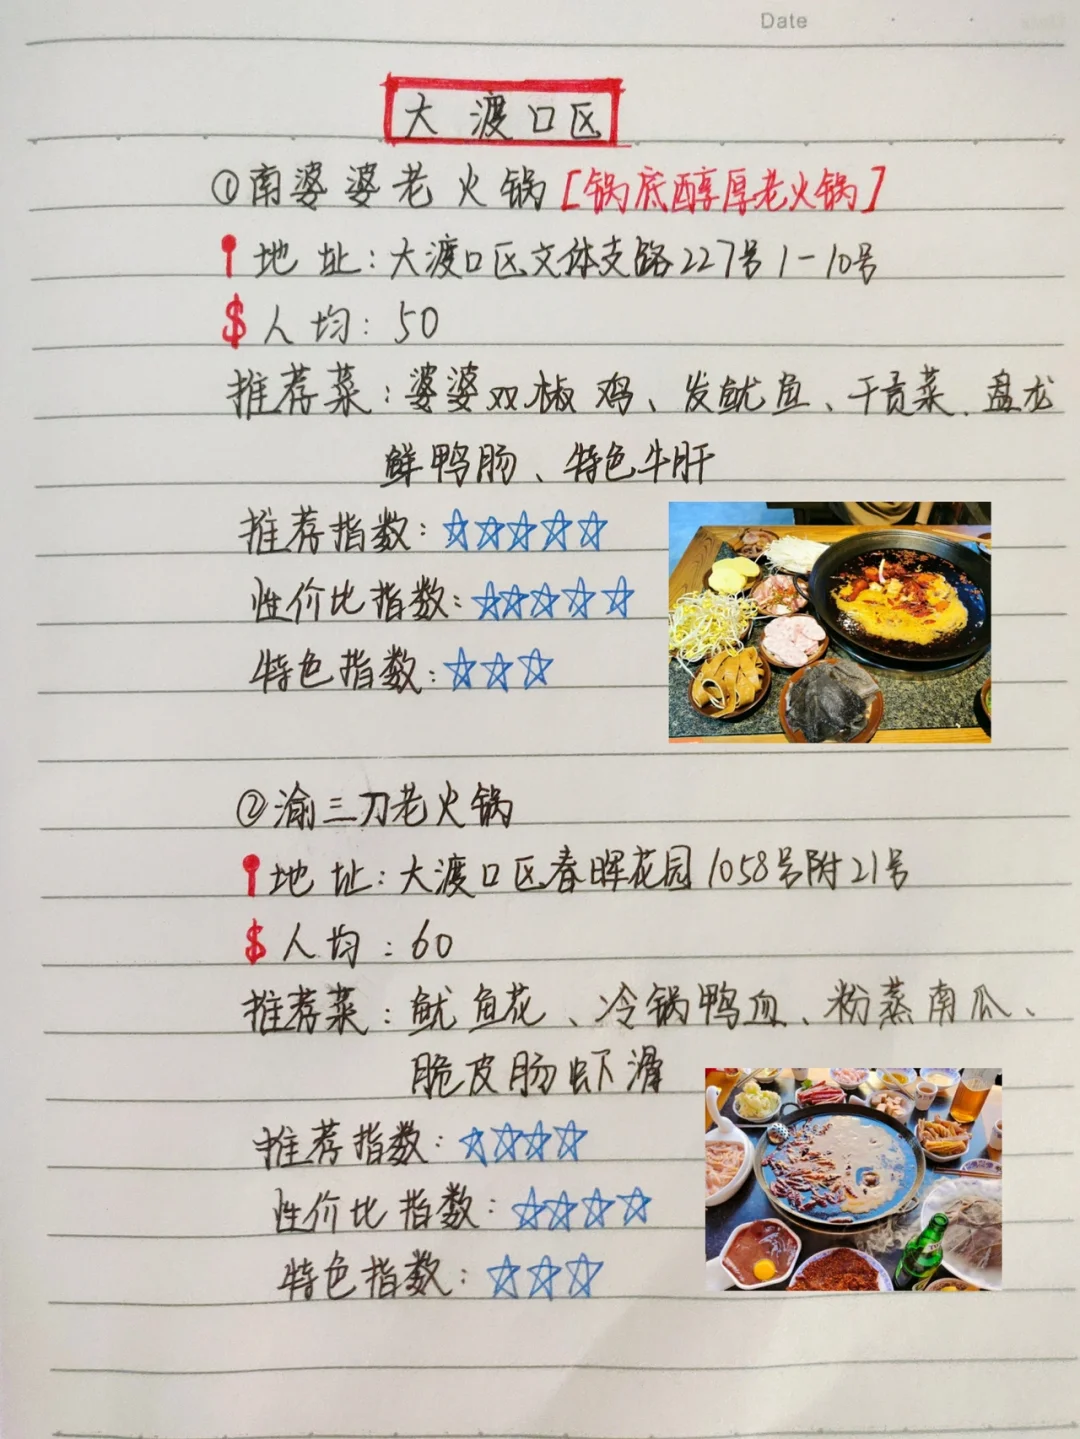 Date
大渡口区
①南婆婆老火锅[锅底醇厚老火锅]
地址:大渡口区文体支路227号1-10号
$人均:50
推荐菜:婆婆双椒鸡、发鱿鱼、干贡菜、盘龙
鲜鸭肠、特色牛肝
推荐指数:☆☆☆☆☆
性价比指数:☆☆☆☆☆
特色指数:☆☆☆
②渝三刀老火锅
地址:大渡口区春晖花园1058号附21号
$人均:60
推荐菜:鱿鱼花、冷锅鸭血、粉蒸南瓜、
脆皮肠虾滑
推荐指数:☆☆☆☆
性价比指数:☆☆☆☆
特色指数:☆☆☆